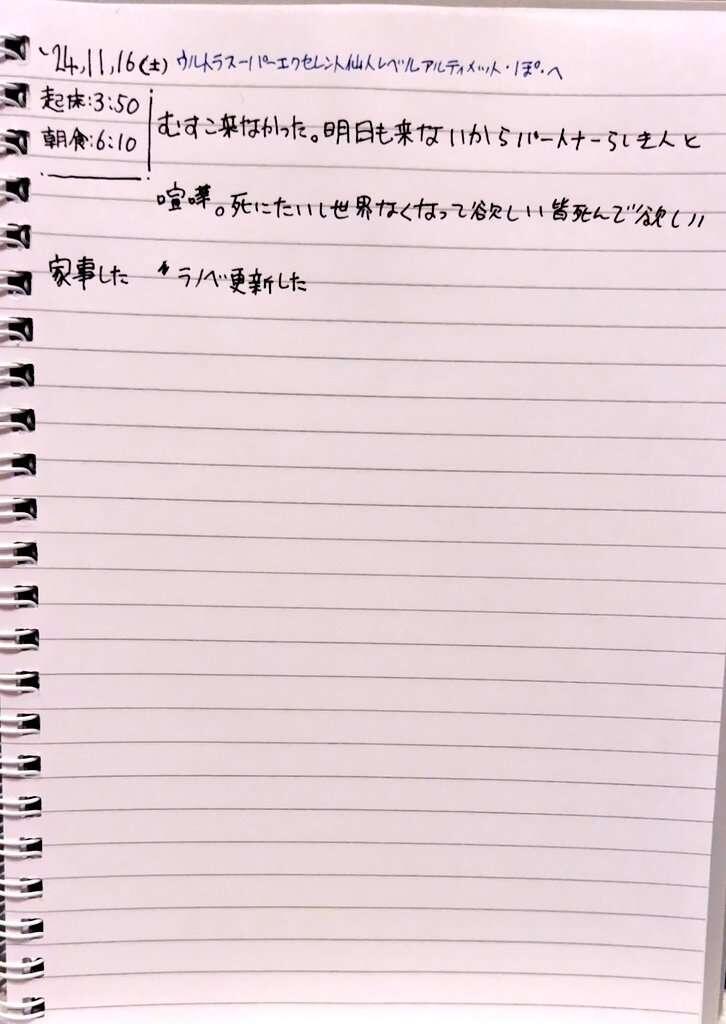 '24,11,16(土) ウルトラスーパーエクセレント仙人レベルアルティメット・ぽ・へ
起床:3:50
朝食:6:10
むすこ来なかった。明日も来ないからパートナーらしき人と
喧嘩。死にたいし世界なくなって欲しい皆死んで欲しい
家事した ラノベ更新した